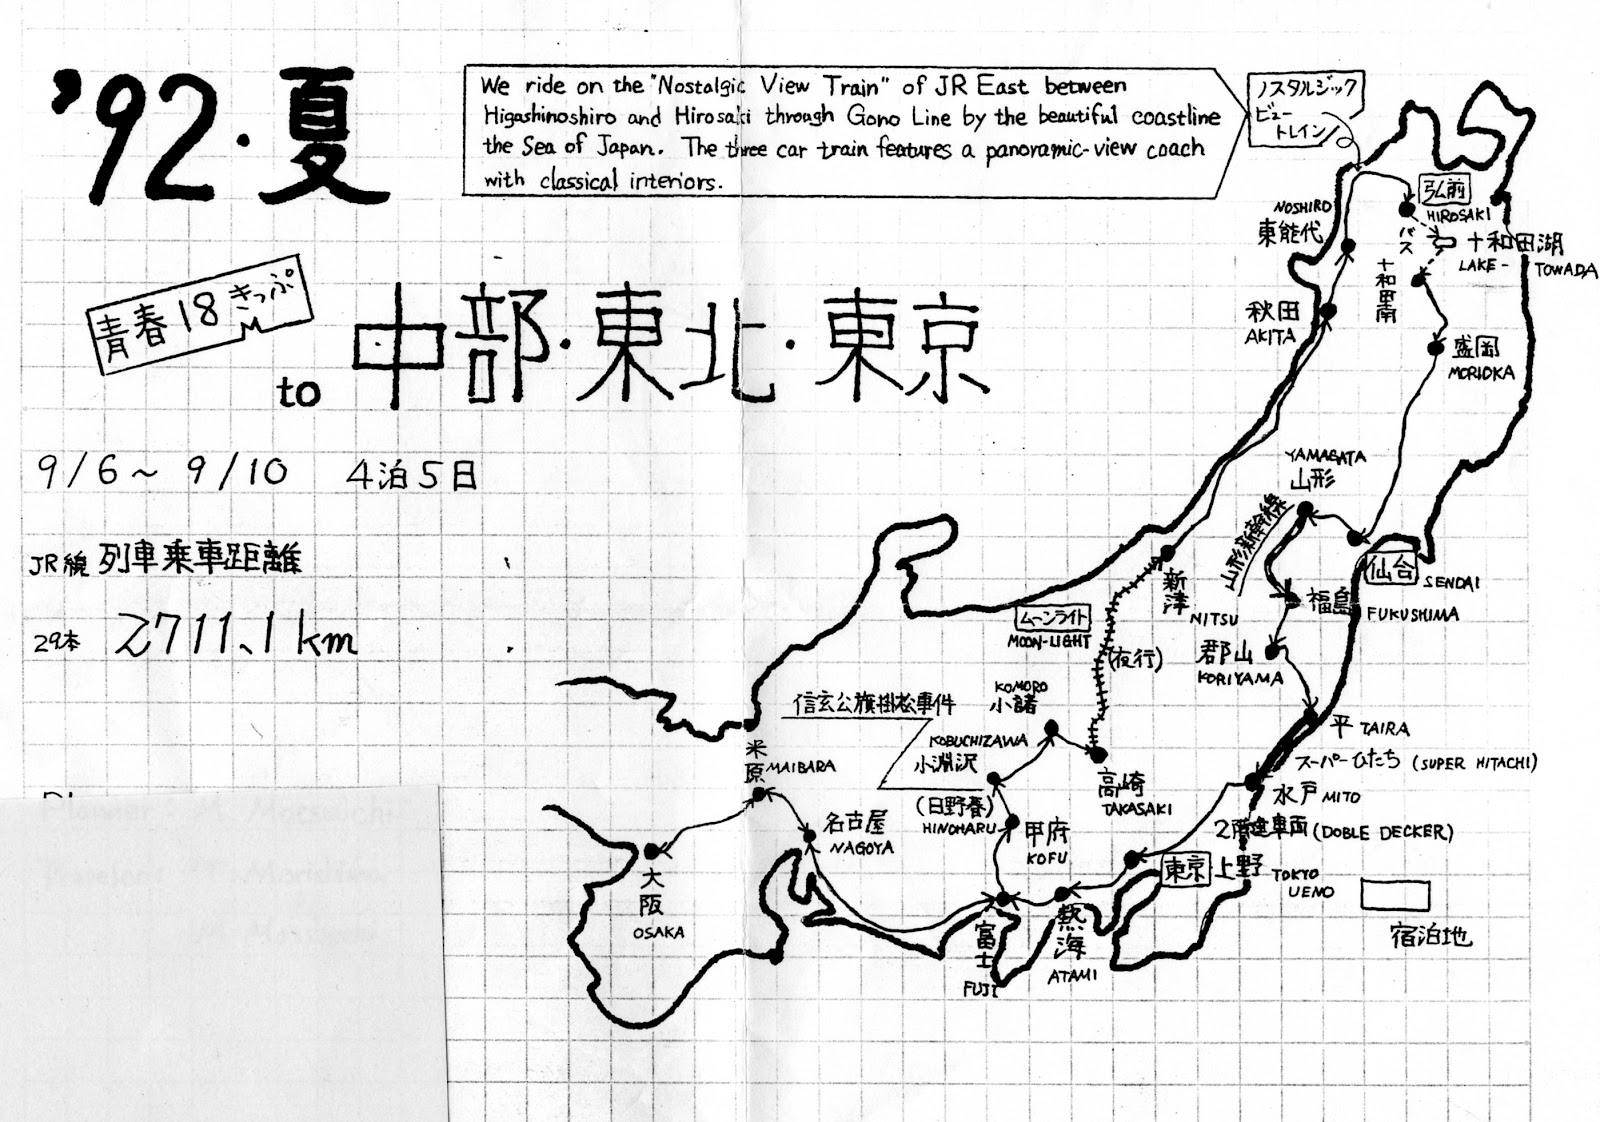 '92・夏
We ride on the "Nostalgic View Train" of JR East between
Higashinoshiro and Hirosaki through Gono Line by the beautiful coastline
the Sea of Japan. The three car train features a panoramic-view coach
with classical interiors.
ノスタルジック
ビュー
トレイン
青春18きっぷ
to 中部・東北・東京
9/6～9/10 4泊5日
JR線 列車乗車距離
29本 2711.1km
弘前
HIROSAKI
バス
十和田湖
LAKE-TOWADA
十和田南
NOSHIRO
東能代
秋田
AKITA
盛岡
MORIOKA
YAMAGATA
山形
山形新幹線
仙台
SENDAI
福島
FUKUSHIMA
新津
NITSU
ムーンライト
MOON-LIGHT
(夜行)
郡山
KORIYAMA
平 TAIRA
スーパーひたち (SUPER HITACHI)
水戸 MITO
2階建車両 (DOBLE DECKER)
東京 上野 TOKYO
UENO
信玄公旗掛松事件
KOMORO
小諸
KOBUCHIZAWA
小淵沢
高崎
TAKASAKI
(日野春)
HINOHARU
甲府
KOFU
米原
MAIBARA
名古屋
NAGOYA
大阪
OSAKA
富士
FUJI
熱海
ATAMI
宿泊地
Planner: M. Matsuuchi